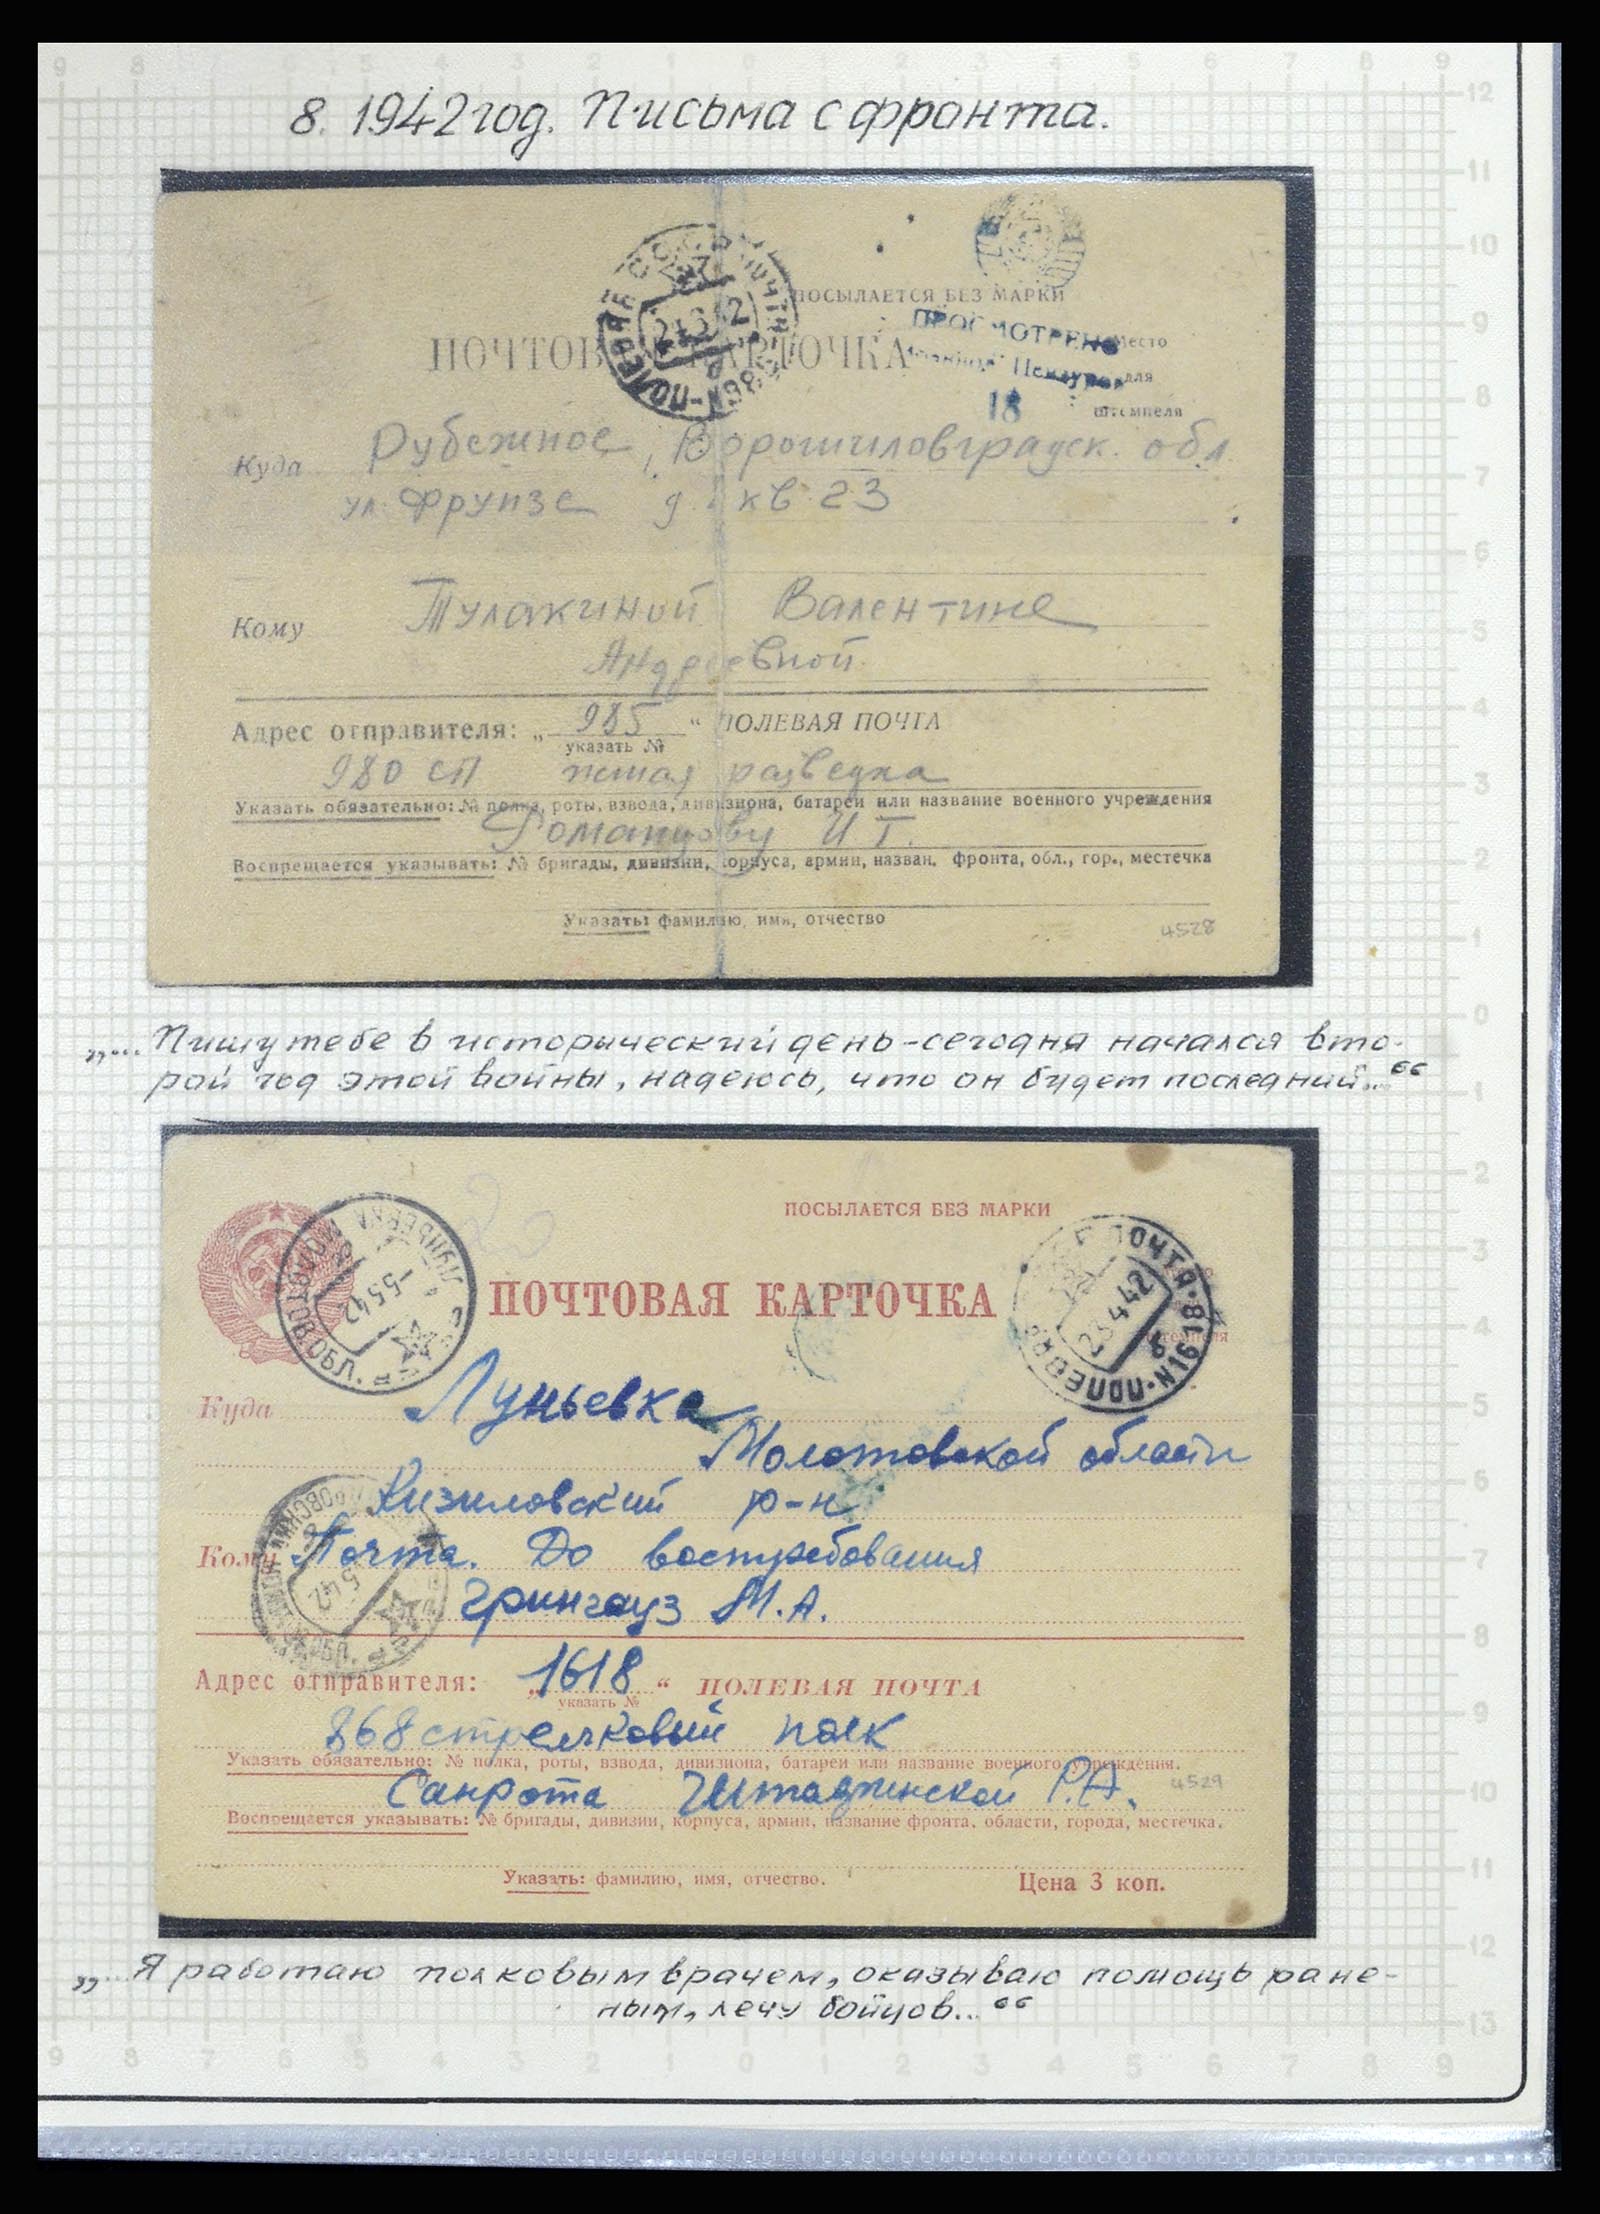 8. 1942 год. Письма с фронта.
ПОСЫЛАЕТСЯ БЕЗ МАРКИ
ПРОСМОТРЕНО
Цензурой
18
Место
для
штемпеля
ПОЧТОВАЯ КАРТОЧКА
Куда Рубежное, Ворошиловградск. обл.
ул. Фрунзе д. кв 23
Кому Тулакиной Валентине
Андреевной
Адрес отправителя: „ 985 “ ПОЛЕВАЯ ПОЧТА
указать №
980 сп пешая разведка
Указать обязательно: № полка, роты, взвода, дивизиона, батареи или название военного учреждения
Романцову И Г.
Воспрещается указывать: № бригады, дивизии, корпуса, армии, назван. фронта, обл., гор., местечка
Указать: фамилию, имя, отчество
4528
„... Пишу тебе в исторический день - сегодня начался вто-
рой год этой войны, надеюсь, что он будет последний...“
ПОСЫЛАЕТСЯ БЕЗ МАРКИ
ЛУНЬЕВКА МОЛОТОВ.ОБЛ.
-5 5 42
ПОЛЕВАЯ ПОЧТА·N1618
23 4 42
ПОЧТОВАЯ КАРТОЧКА
Куда Луньевка
Молотовской области
Кизиловский р-н
Кому Почта. До востребования
Грингауз М.А.
Адрес отправителя: „ 1618 “ ПОЛЕВАЯ ПОЧТА
указать №
868 стрелковый полк
Указать обязательно: № полка, роты, взвода, дивизиона, батареи или название военного учреждения.
Санрота Р.А.
4529
Воспрещается указывать: № бригады, дивизии, корпуса, армии, название фронта, области, города, местечка.
Указать: фамилию, имя, отчество.
Цена 3 коп.
„... Я работаю полковым врачем, оказываю помощь ране-
ным, лечу бойцов...“